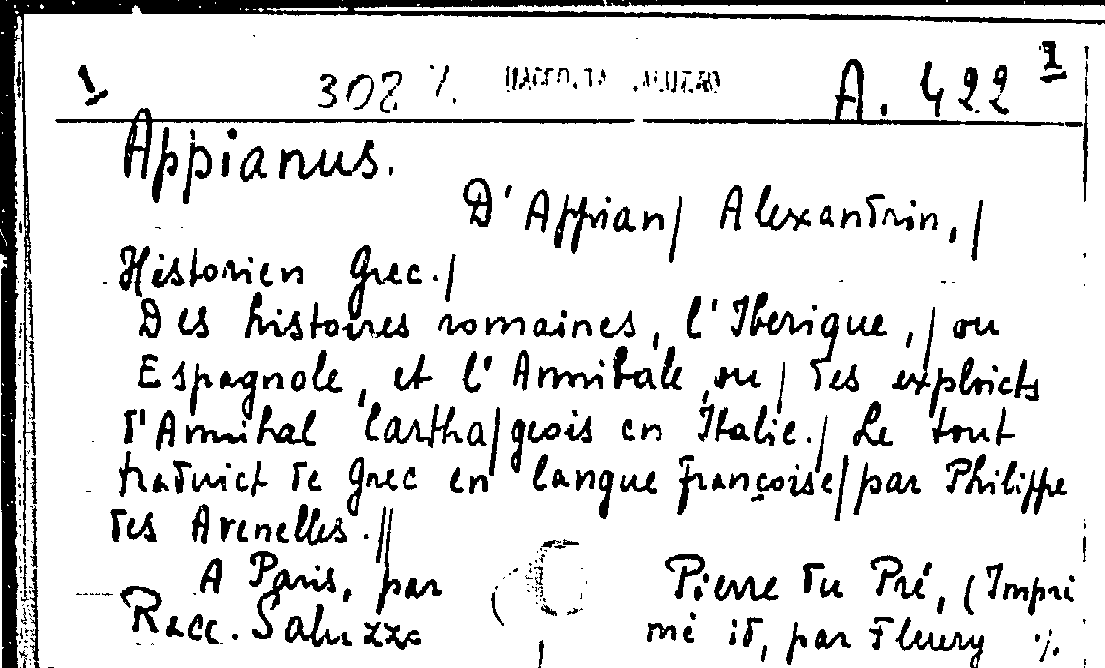 1 308 ·/. RACCOLTA SALUZZO A. 422 1
Appianus.
D'Appian/ Alexandrin,/
Historien Grec./
Des histoires romaines, l'Iberique,/ ou
Espagnole, et l'Annibale, ou/ des exploicts
d'Annibal Cartha/geois en Italie./ Le tout
traduict de Grec en langue françoise/ par Philippe
des Avenelles.//
A Paris, par Pierre du Pré, (Impri
Racc. Saluzzo mé id, par Fleury ·/.